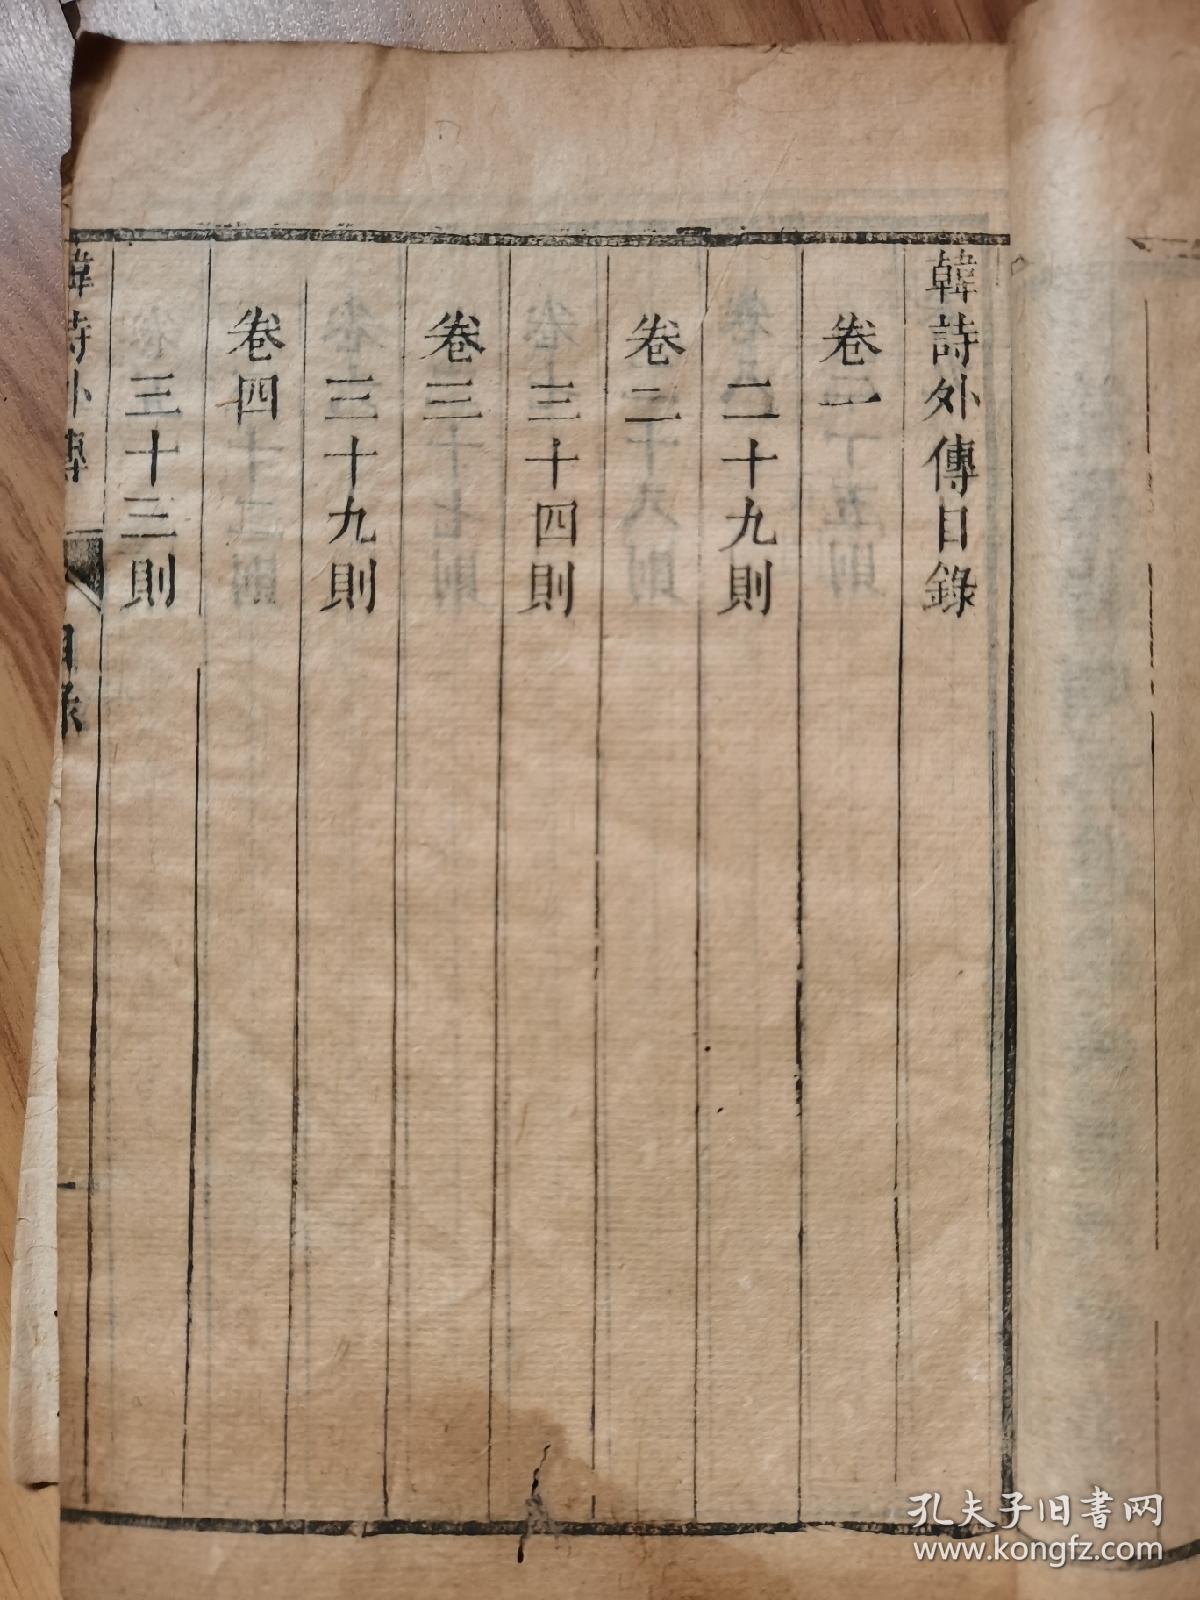 韓詩外傳目錄
卷一
二十九則
卷二
三十四則
卷三
三十九則
卷四
三十三則
韓詩外傳
目錄
孔夫子旧书网
www.kongfz.com